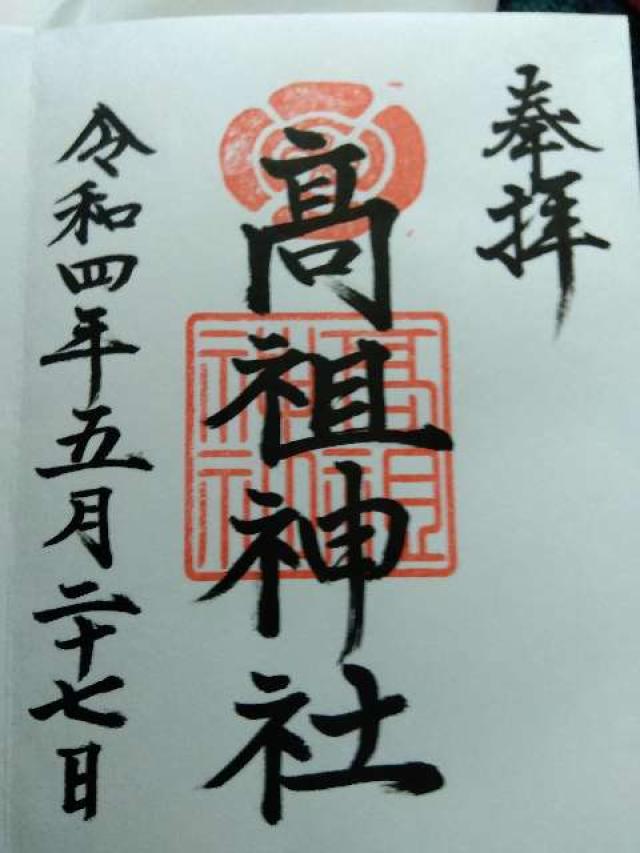 奉拝
高祖神社
高祖神社
令和四年五月二十七日